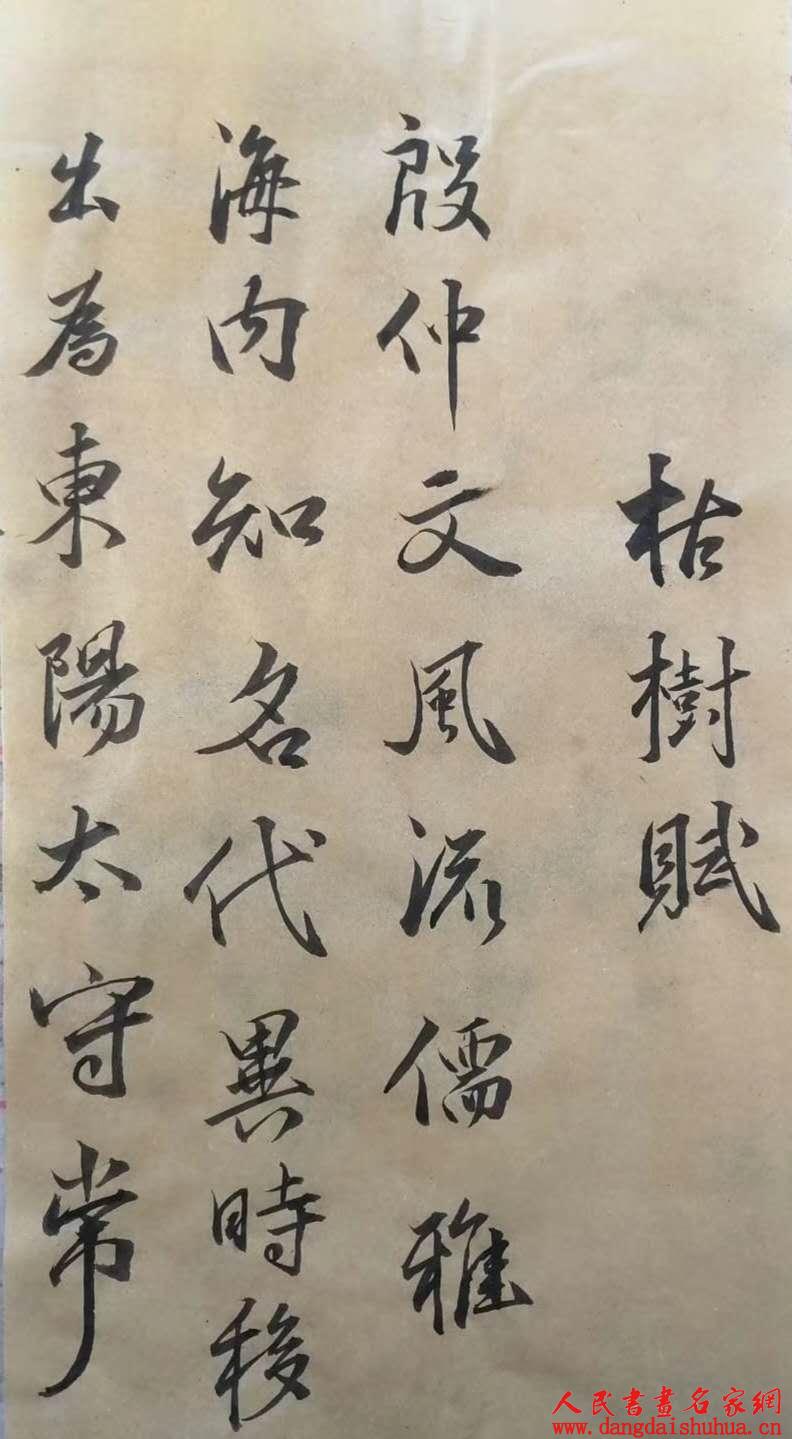 枯樹賦
殷仲文風流儒雅
海内知名代異時移
出為東陽太守常
人民書畫名家網
www.dangdaishuhua.cn